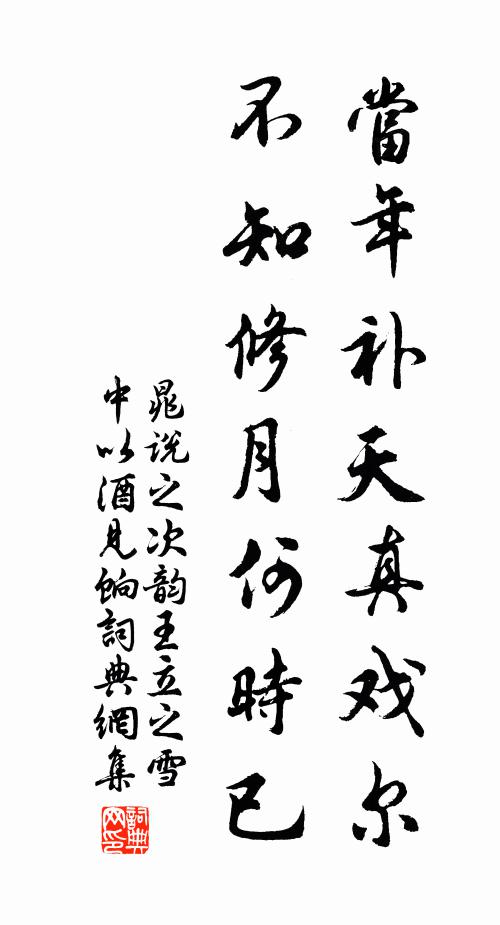 當年补天真戏尔
不知修月何時已
晁说之次韵王立之雪
中以酒見餉詞典網集
詞典
网印